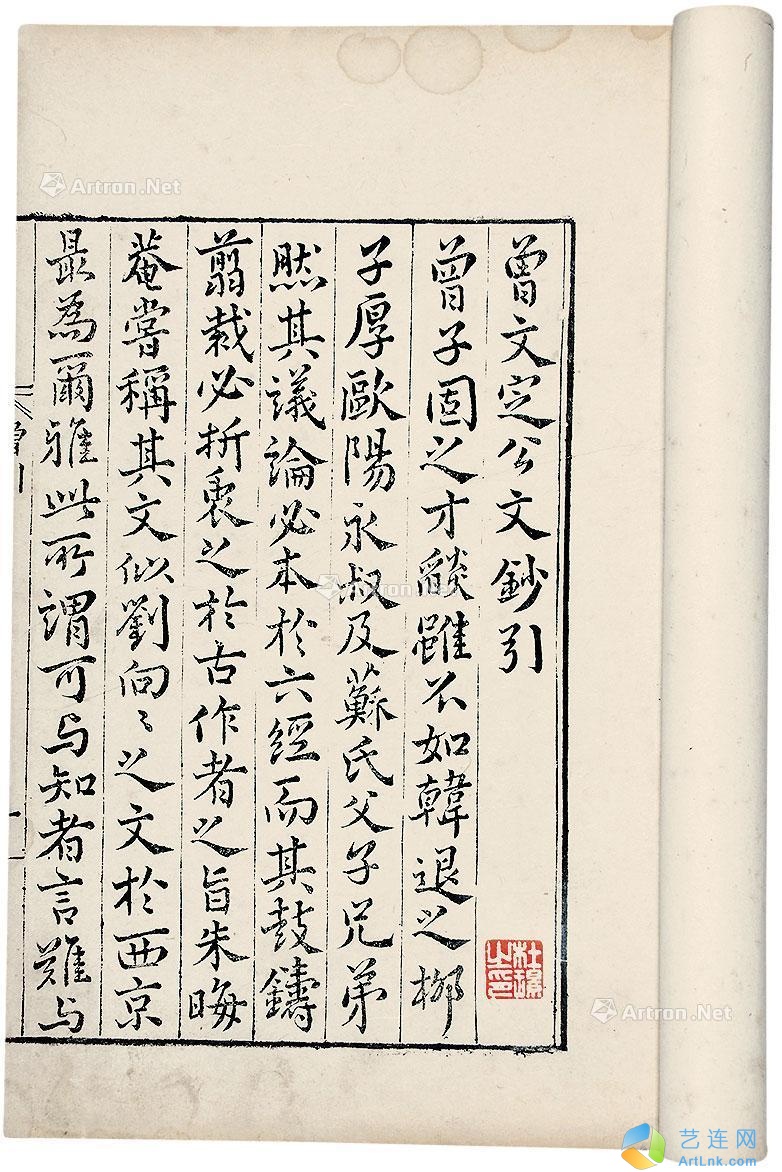 曾文定公文鈔引
曾子固之才燄雖不如韓退之柳
子厚歐陽永叔及蘇氏父子兄弟
然其議論必本於六經而其鼓鑄
翦裁必折衷之於古作者之旨朱晦
菴嘗稱其文似劉向向之文於西京
最為爾雅此所謂可与知者言難与
Artron.Net
Artron.Net
Artron.Net
艺连网
ArtLnk.com